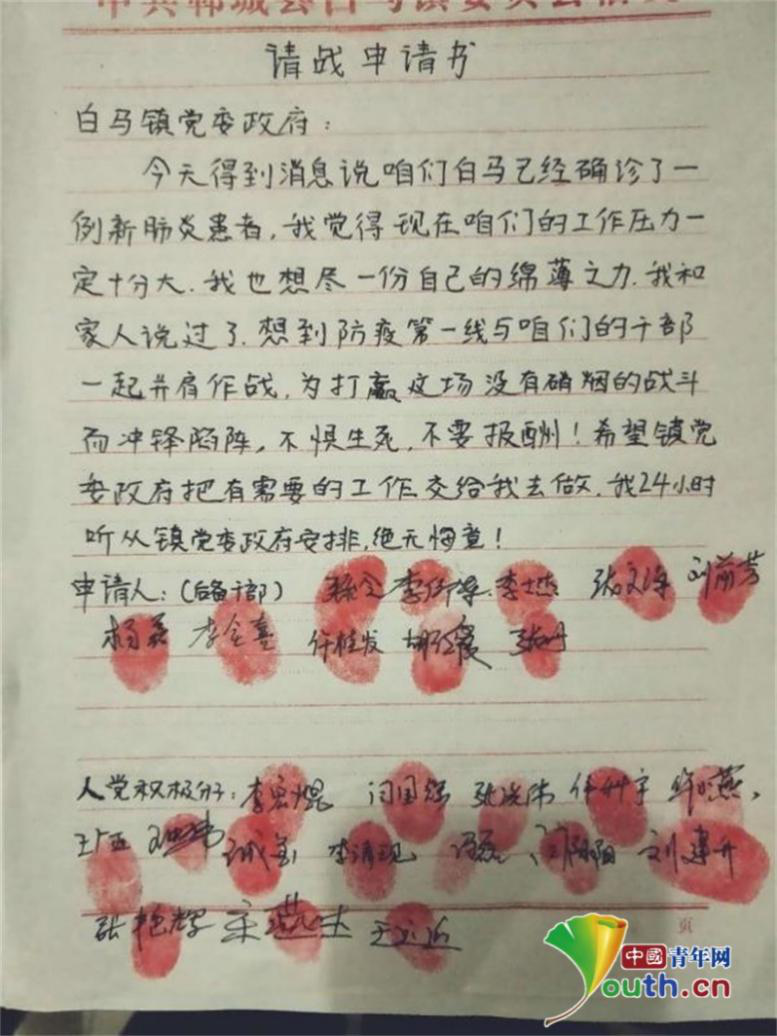 中共郸城县白马镇委员会
请战申请书
白马镇党委政府：
今天得到消息说咱们白马已经确诊了一
例新肺炎患者，我觉得现在咱们的工作压力一
定十分大，我也想尽一份自己的绵薄之力，我和
家人说过了，想到防疫第一线与咱们的干部
一起并肩作战，为打赢这场没有硝烟的战斗
而冲锋陷阵，不惧生死，不要报酬！希望镇党
委政府把有需要的工作交给我去做，我24小时
听从镇党委政府安排，绝无悔意！
申请人：（后备干部） 张文净 刘前芳
杨磊 李全喜
入党积极分子： 闫国强 张洪伟
王广西 刘建升
张艳辉
页
中國青年网
Youth.cn